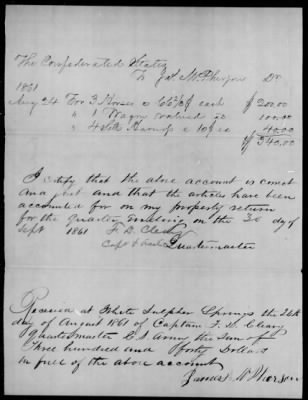 The Confederate States
To Jas. McPherson Dr
1861
Aug 24 For 3 Horses @ 66 2/3 $ each $ 200.00
" 1 Wagon 100.00
" 4 Harness @ 10$ ea 40.00
$ 340.00
I certify that the above account is correct
and just and that the articles have been
accounted for on my property return
for the quarter ending on the 30 day of
Sept 1861 F. D. Cleary
Capt &
Quartermaster
Received at White Sulpher Springs the 24th
day of August 1861 of Captain F. D. Cleary
Quartermaster C.S. Army the sum of
Three hundred and forty Dollars
in full of the above account
James McPherson